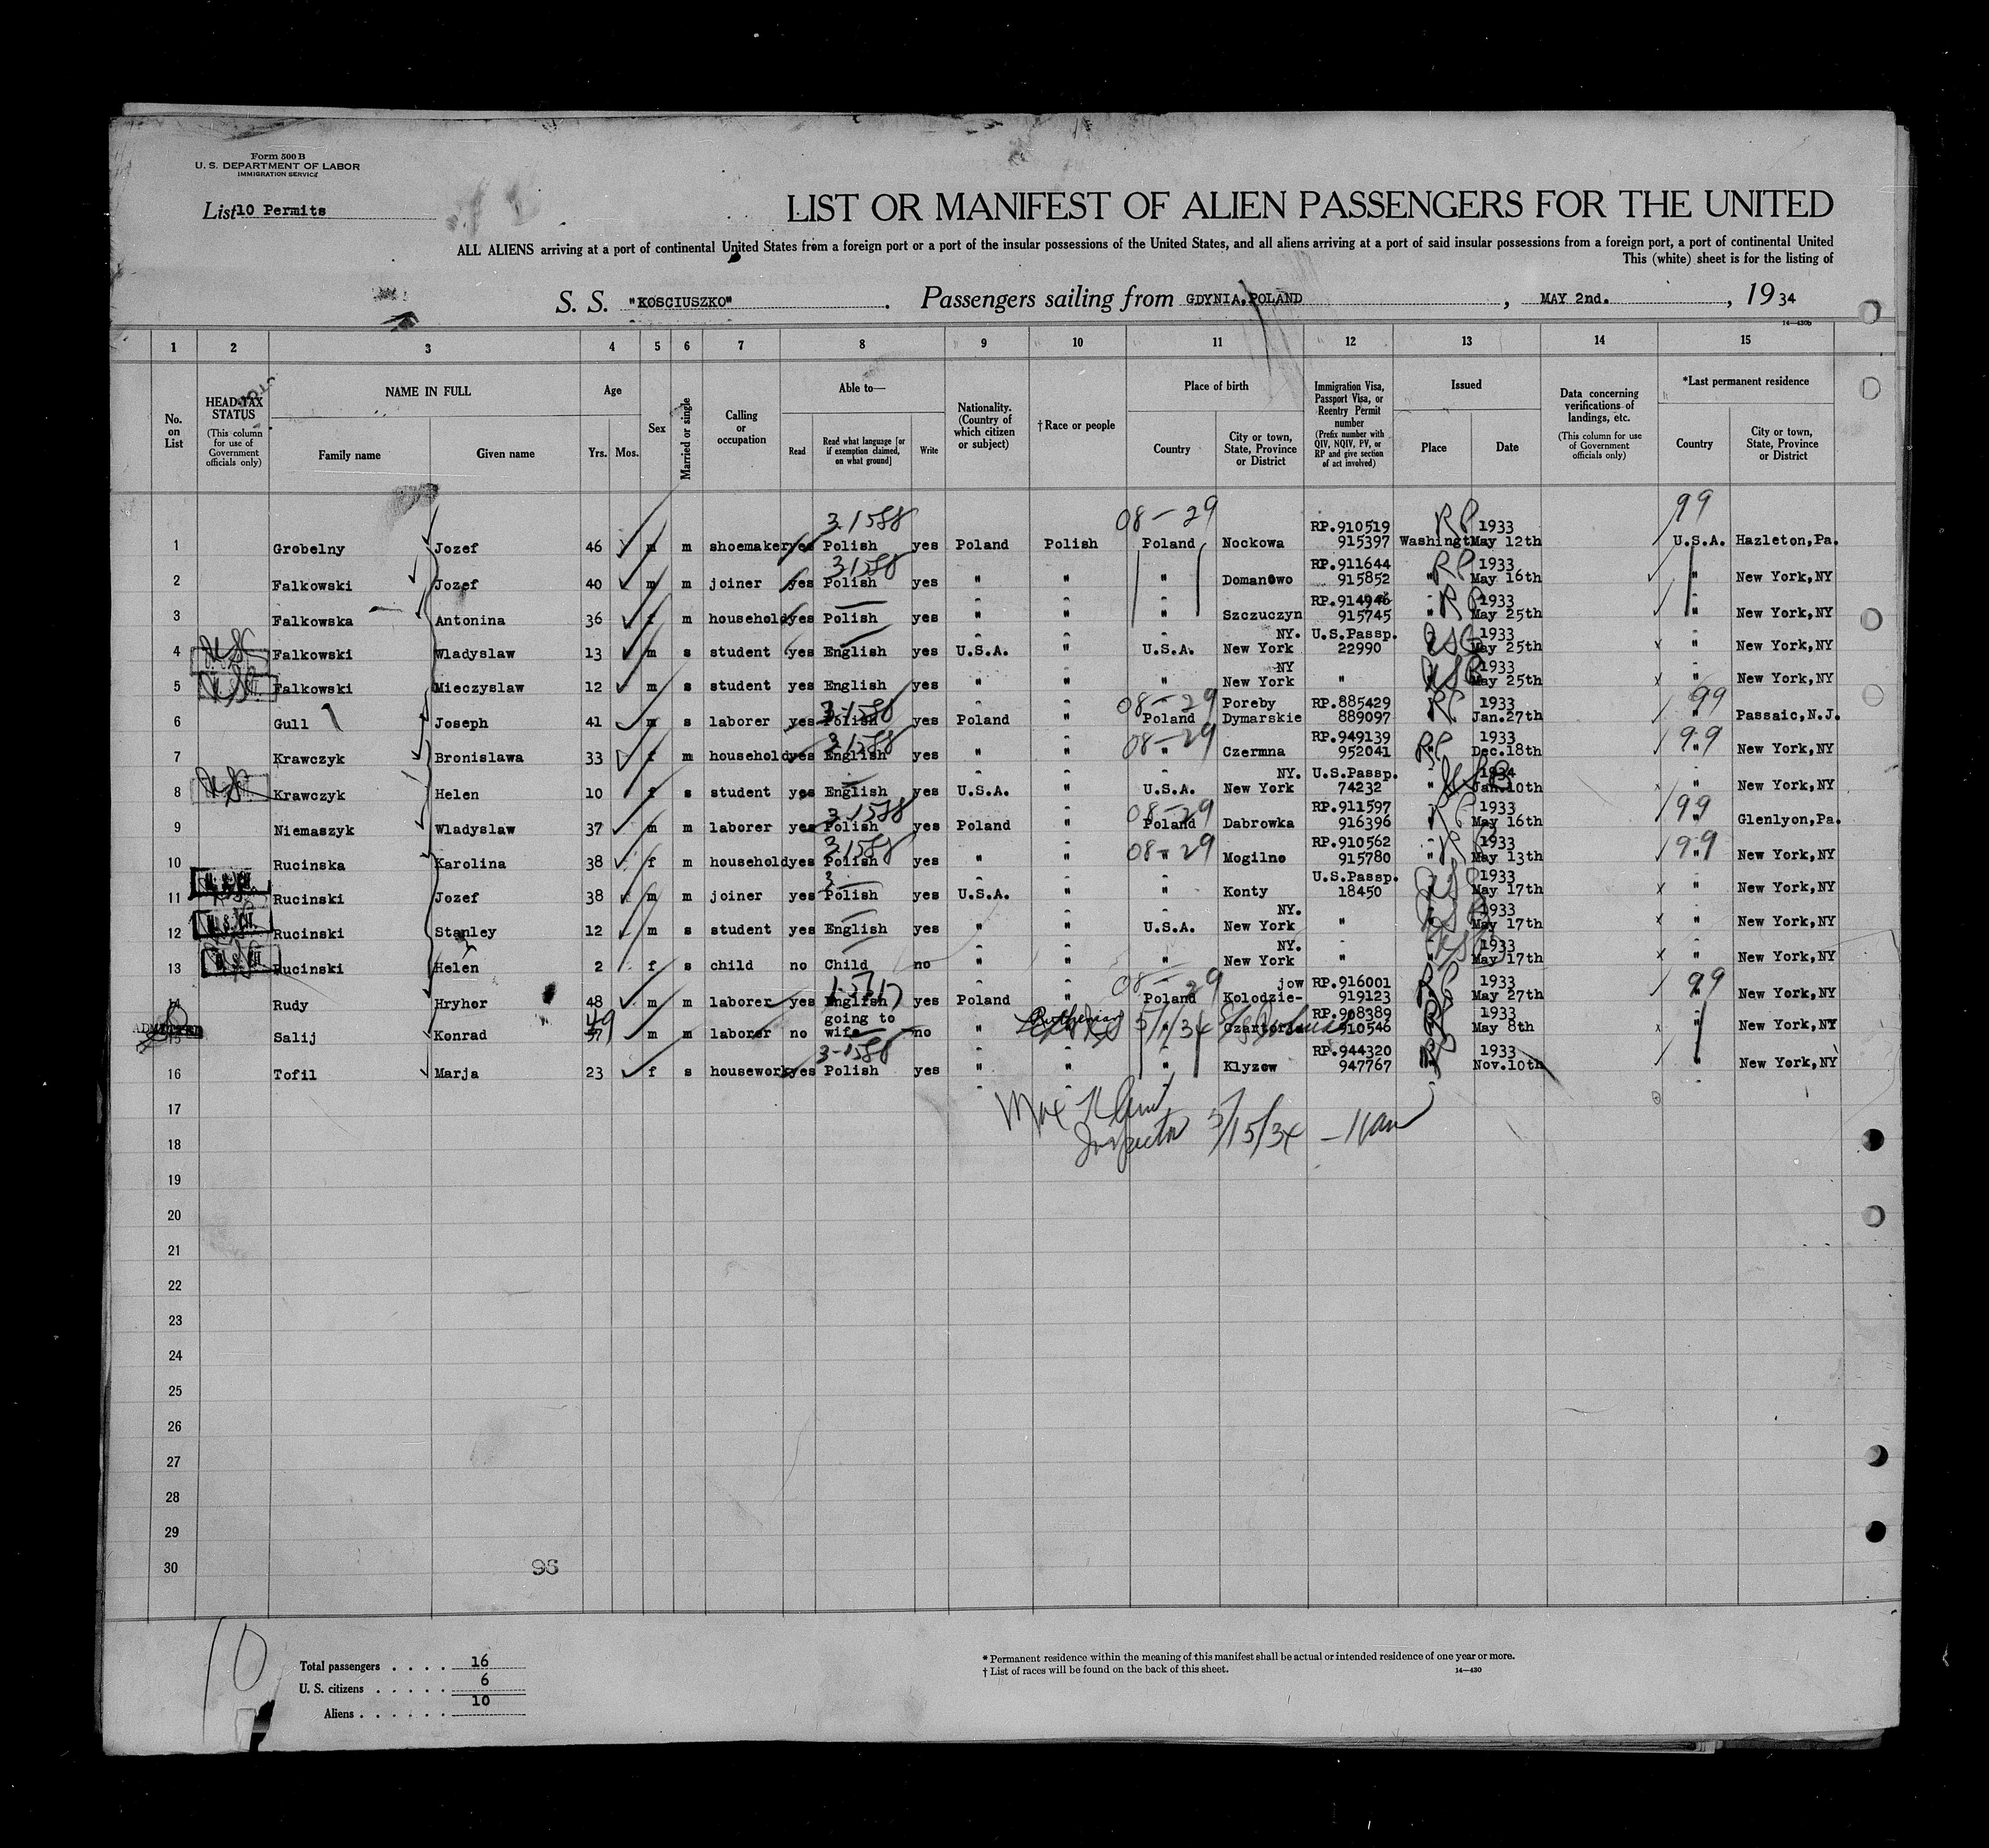 Form 500 B
U. S. DEPARTMENT OF LABOR
IMMIGRATION SERVICE
List 10 Permits
LIST OR MANIFEST OF ALIEN PASSENGERS FOR THE UNITED
ALL ALIENS arriving at a port of continental United States from a foreign port or a port of the insular possessions of the United States, and all aliens arriving at a port of said insular possessions from a foreign port, a port of continental United
This (white) sheet is for the listing of
S. S. "KOSCIUSZKO" . Passengers sailing from GDYNIA,POLAND , MAY 2nd. , 19 34
14—430b
1 2 3 4 5 6 7 8 9 10 11 12 13 14 15
No. on List
HEAD-TAX STATUS (This column for use of Government officials only)
NAME IN FULL Family name Given name
Age Yrs. Mos.
Sex
Married or single
Calling or occupation
Able to— Read Read what language [or if exemption claimed, on what ground] Write
Nationality. (Country of which citizen or subject)
† Race or people
Place of birth Country City or town, State, Province or District
Immigration Visa, Passport Visa, or Reentry Permit number (Prefix number with QIV, NQIV, PV, or RP and give section of act involved)
Issued Place Date
Data concerning verifications of landings, etc. (This column for use of Government officials only)
*Last permanent residence Country City or town, State, Province or District
3.1588 08-29 RP.910519 RP 1933 99
1 Grobelny Jozef 46 m m shoemaker yes Polish yes Poland Polish Poland Nockowa 915397 Washingt May 12th U.S.A. Hazleton,Pa.
3.1588 RP.911644 RP 1933
2 Falkowski Jozef 40 m m joiner yes Polish yes " " " Domanowo 915852 " May 16th " New York,NY
RP.914946 RP 1933
3 Falkowska Antonina 36 f m household yes Polish yes " " " Szczuczyn 915745 " May 25th " New York,NY
USC NY. U.S.Passp. USC 1933
4 Falkowski Wladyslaw 13 m s student yes English yes U.S.A. " U.S.A. New York 22990 May 25th " New York,NY
USC NY USC 1933
5 Falkowski Mieczyslaw 12 m s student yes English yes " " " New York " May 25th " New York,NY
3-1588 08-29 Poreby RP.885429 RP 1933 99
6 Gull Joseph 41 m s laborer yes Polish yes Poland " Poland Dymarskie 889097 " Jan.27th " Passaic,N.J.
3.1588 08-29 RP.949139 RP 1933 99
7 Krawczyk Bronislawa 33 f m household yes English yes " " " Czermna 952041 " Dec.18th " New York,NY
USC NY. U.S.Passp. 1934
8 Krawczyk Helen 10 f s student yes English yes U.S.A. " U.S.A. New York 74232 " Jan.10th " New York,NY
3.1588 08-29 RP.911597 RP 1933 99
9 Niemaszyk Wladyslaw 37 m m laborer yes Polish yes Poland " Poland Dabrowka 916396 " May 16th " Glenlyon,Pa.
3.1588 08-29 RP.910562 RP 1933 99
10 Rucinska Karolina 38 f m household yes Polish yes " " " Mogilno 915780 " May 13th " New York,NY
U.S.Passp. 1933
11 Rucinski Jozef 38 m m joiner yes Polish yes U.S.A. " " Konty 18450 " May 17th " New York,NY
NY. 1933
12 Rucinski Stanley 12 m s student yes English yes " " U.S.A. New York " " May 17th " New York,NY
NY. 1933
13 Rucinski Helen 2 f s child no Child no " " " New York " " May 17th " New York,NY
08-29 jow RP.916001 RP 1933 99
14 Rudy Hryhor 48 m m laborer yes English yes Poland " Poland Kolodzie- 919123 " May 27th " New York,NY
ADMITTED 49 going to Ruthenian RP.908389 RP 1933
15 Salij Konrad 37 m m laborer no wife no " 5/1/34 " Czartor 910546 May 8th " New York,NY
3-1588 RP.944320 RP 1933
16 Tofil Marja 23 f s housework yes Polish yes " " " Klyzow 947767 " Nov.10th " New York,NY
17
Inspector 5/15/34
18
19
20
21
22
23
24
25
26
27
28
29
30
96
10
Total passengers . . . . 16
U. S. citizens . . . . . 6
Aliens . . . . . . 10
* Permanent residence within the meaning of this manifest shall be actual or intended residence of one year or more.
† List of races will be found on the back of this sheet. 14—430